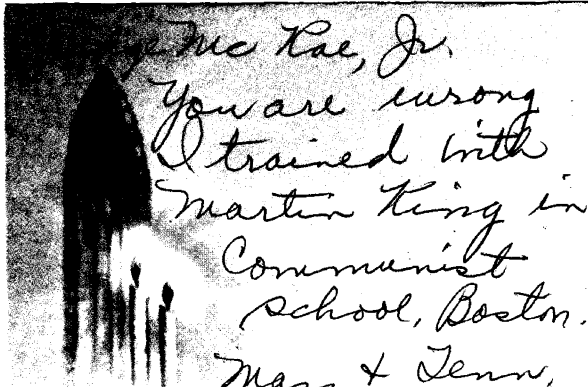 Mc Rae, Jr.
You are wrong
I trained with
Martin King in
Communist
school, Boston.
& Tenn.